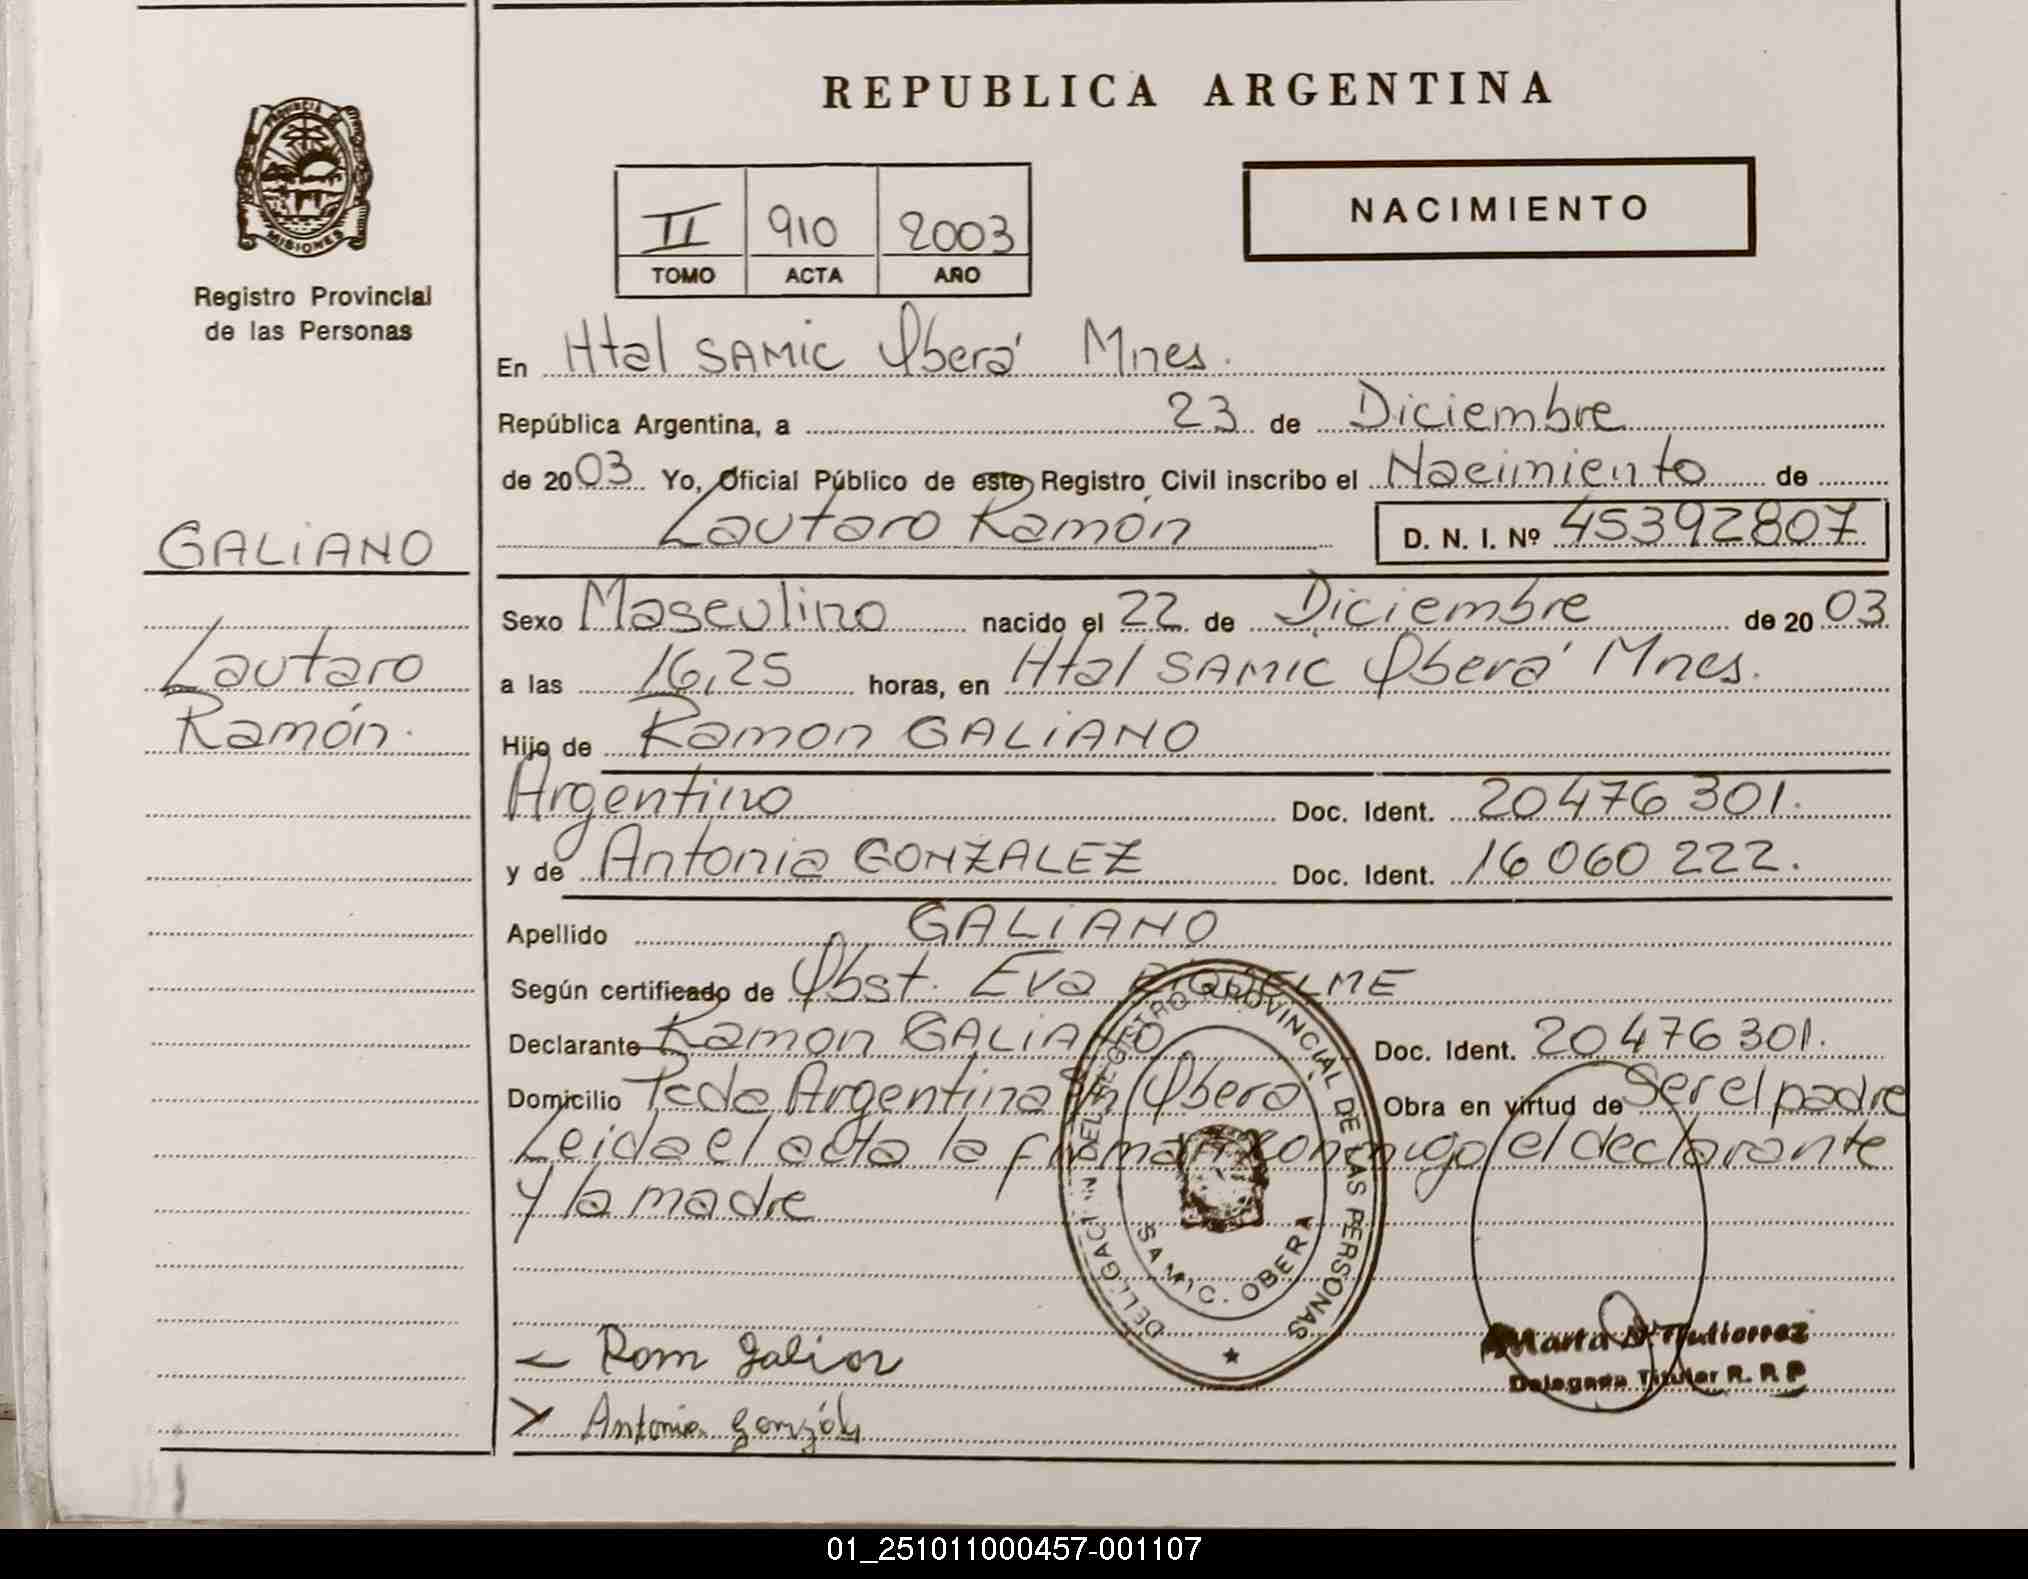 REPUBLICA ARGENTINA
PROVINCIA DE
MISIONES
Registro Provincial
de las Personas
II 910 2003
TOMO ACTA AÑO
NACIMIENTO
En Htal SAMIC Oberá Mnes.
República Argentina, a 23 de Diciembre
de 2003 Yo, Oficial Público de este Registro Civil inscribo el Nacimiento de
Lautaro Ramón D. N. I. Nº 45392807
GALIANO
Lautaro
Ramón.
Sexo Masculino nacido el 22 de Diciembre de 2003
a las 16,25 horas, en Htal SAMIC Oberá Mnes.
Hijo de Ramon GALIANO
Argentino Doc. Ident. 20476301.
y de Antonia GONZALEZ Doc. Ident. 16060222.
Apellido GALIANO
Según certificado de Obst. Eva RIQUELME
Declarante Ramon GALIANO Doc. Ident. 20476301.
Domicilio Pcda Argentina Oberá Obra en virtud de ser el padre
Leida el acta la firman conmigo el declarante
y la madre
DELEGACION DEL REGISTRO PROVINCIAL DE LAS PERSONAS
SAMIC. OBERA
Marta Gutierrez
Delegada Titular R. P. P
Antonia
01_251011000457-001107